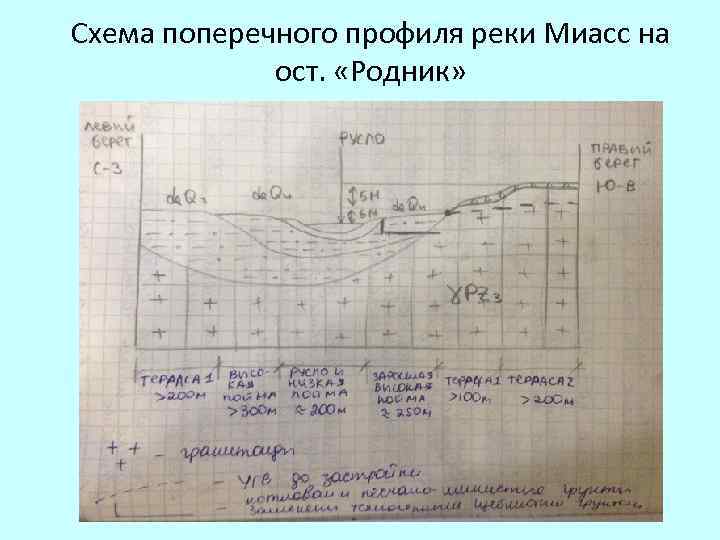 Схема поперечного профиля реки Миасс на
ост. «Родник»
ЛЕВЫЙ
БЕРЕГ
С-З
РУСЛО
ПРАВЫЙ
БЕРЕГ
Ю-В
5м
5м
γPZ3
ТЕРРАСА 1
>200м
ВЫСО-
КАЯ
ПОЙМА
>300м
РУСЛО И
НИЗКАЯ
ПОЙМА
≈ 200м
ВЫСОКАЯ
ПОЙМА
≈ 250м
ТЕРРАСА 1
>100м
ТЕРРАСА 2
>200м
+ +
+
- гранитоиды
УГВ до застройки
грунты
щебнистый